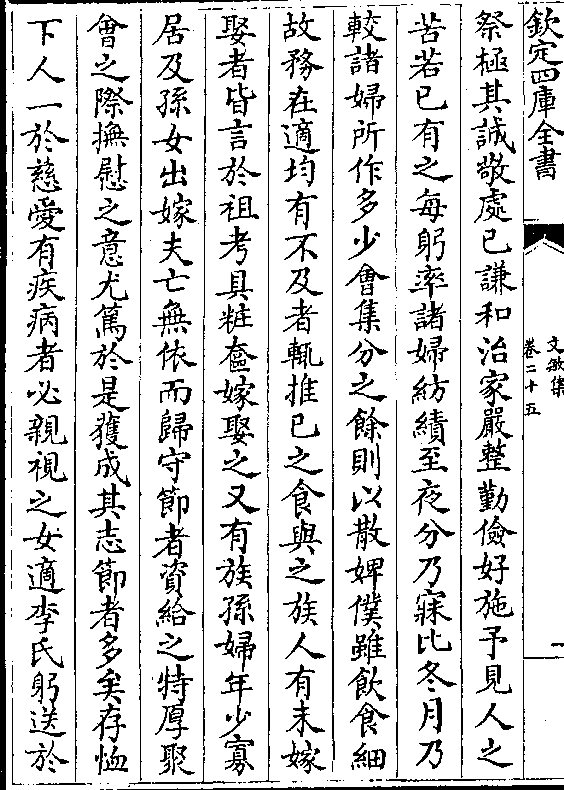 欽定四庫全書
文敏集
卷二十五
祭極其誠敬處已謙和治家嚴整勤儉好施予見人之
苦若已有之每躬率諸婦紡績至夜分乃寐比冬月乃
較諸婦所作多少會集分之餘則以散婢僕雖飲食細
故務在適均有不及者輒推已之食與之族人有未嫁
娶者皆言於祖考具粧奩嫁娶之又有族孫婦年少寡
居及孫女出嫁夫亡無依而歸守節者資給之特厚聚
會之際撫慰之意尤篤於是獲成其志節者多矣存恤
下人一於慈愛有疾病者必親視之女適李氏躬送於